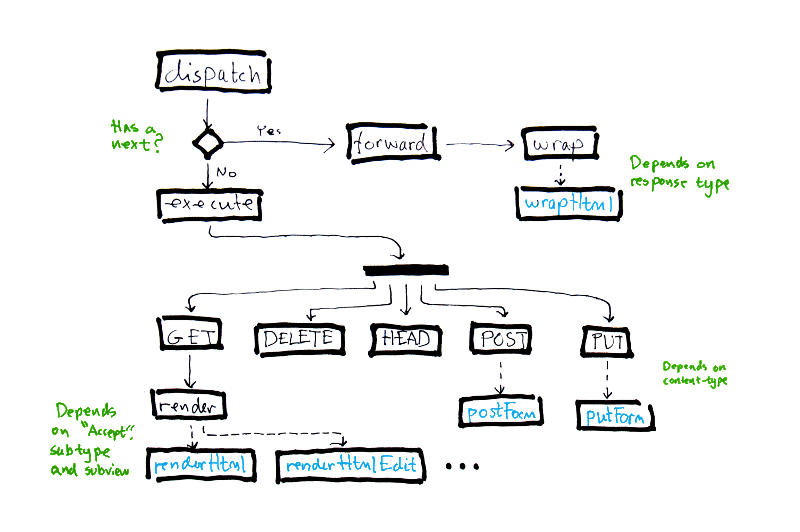 dispatch
Has a
next?
Yes
forward
wrap
No
Depends on
response type
execute
wrapHtml
GET
DELETE
HEAD
POST
PUT
Depends on
content-type
render
postForm
putForm
Depends
on "Accept",
subtype
and subview
renderHtml
renderHtmlEdit
...